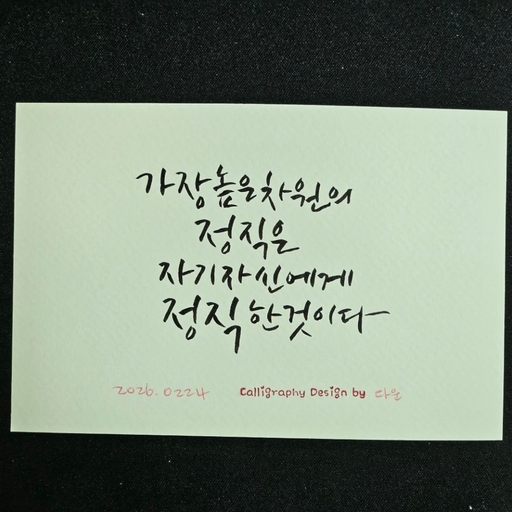 가장높은차원의
정직은
자기자신에게
정직한것이다
2026. 0224 Calligraphy Design by 다온